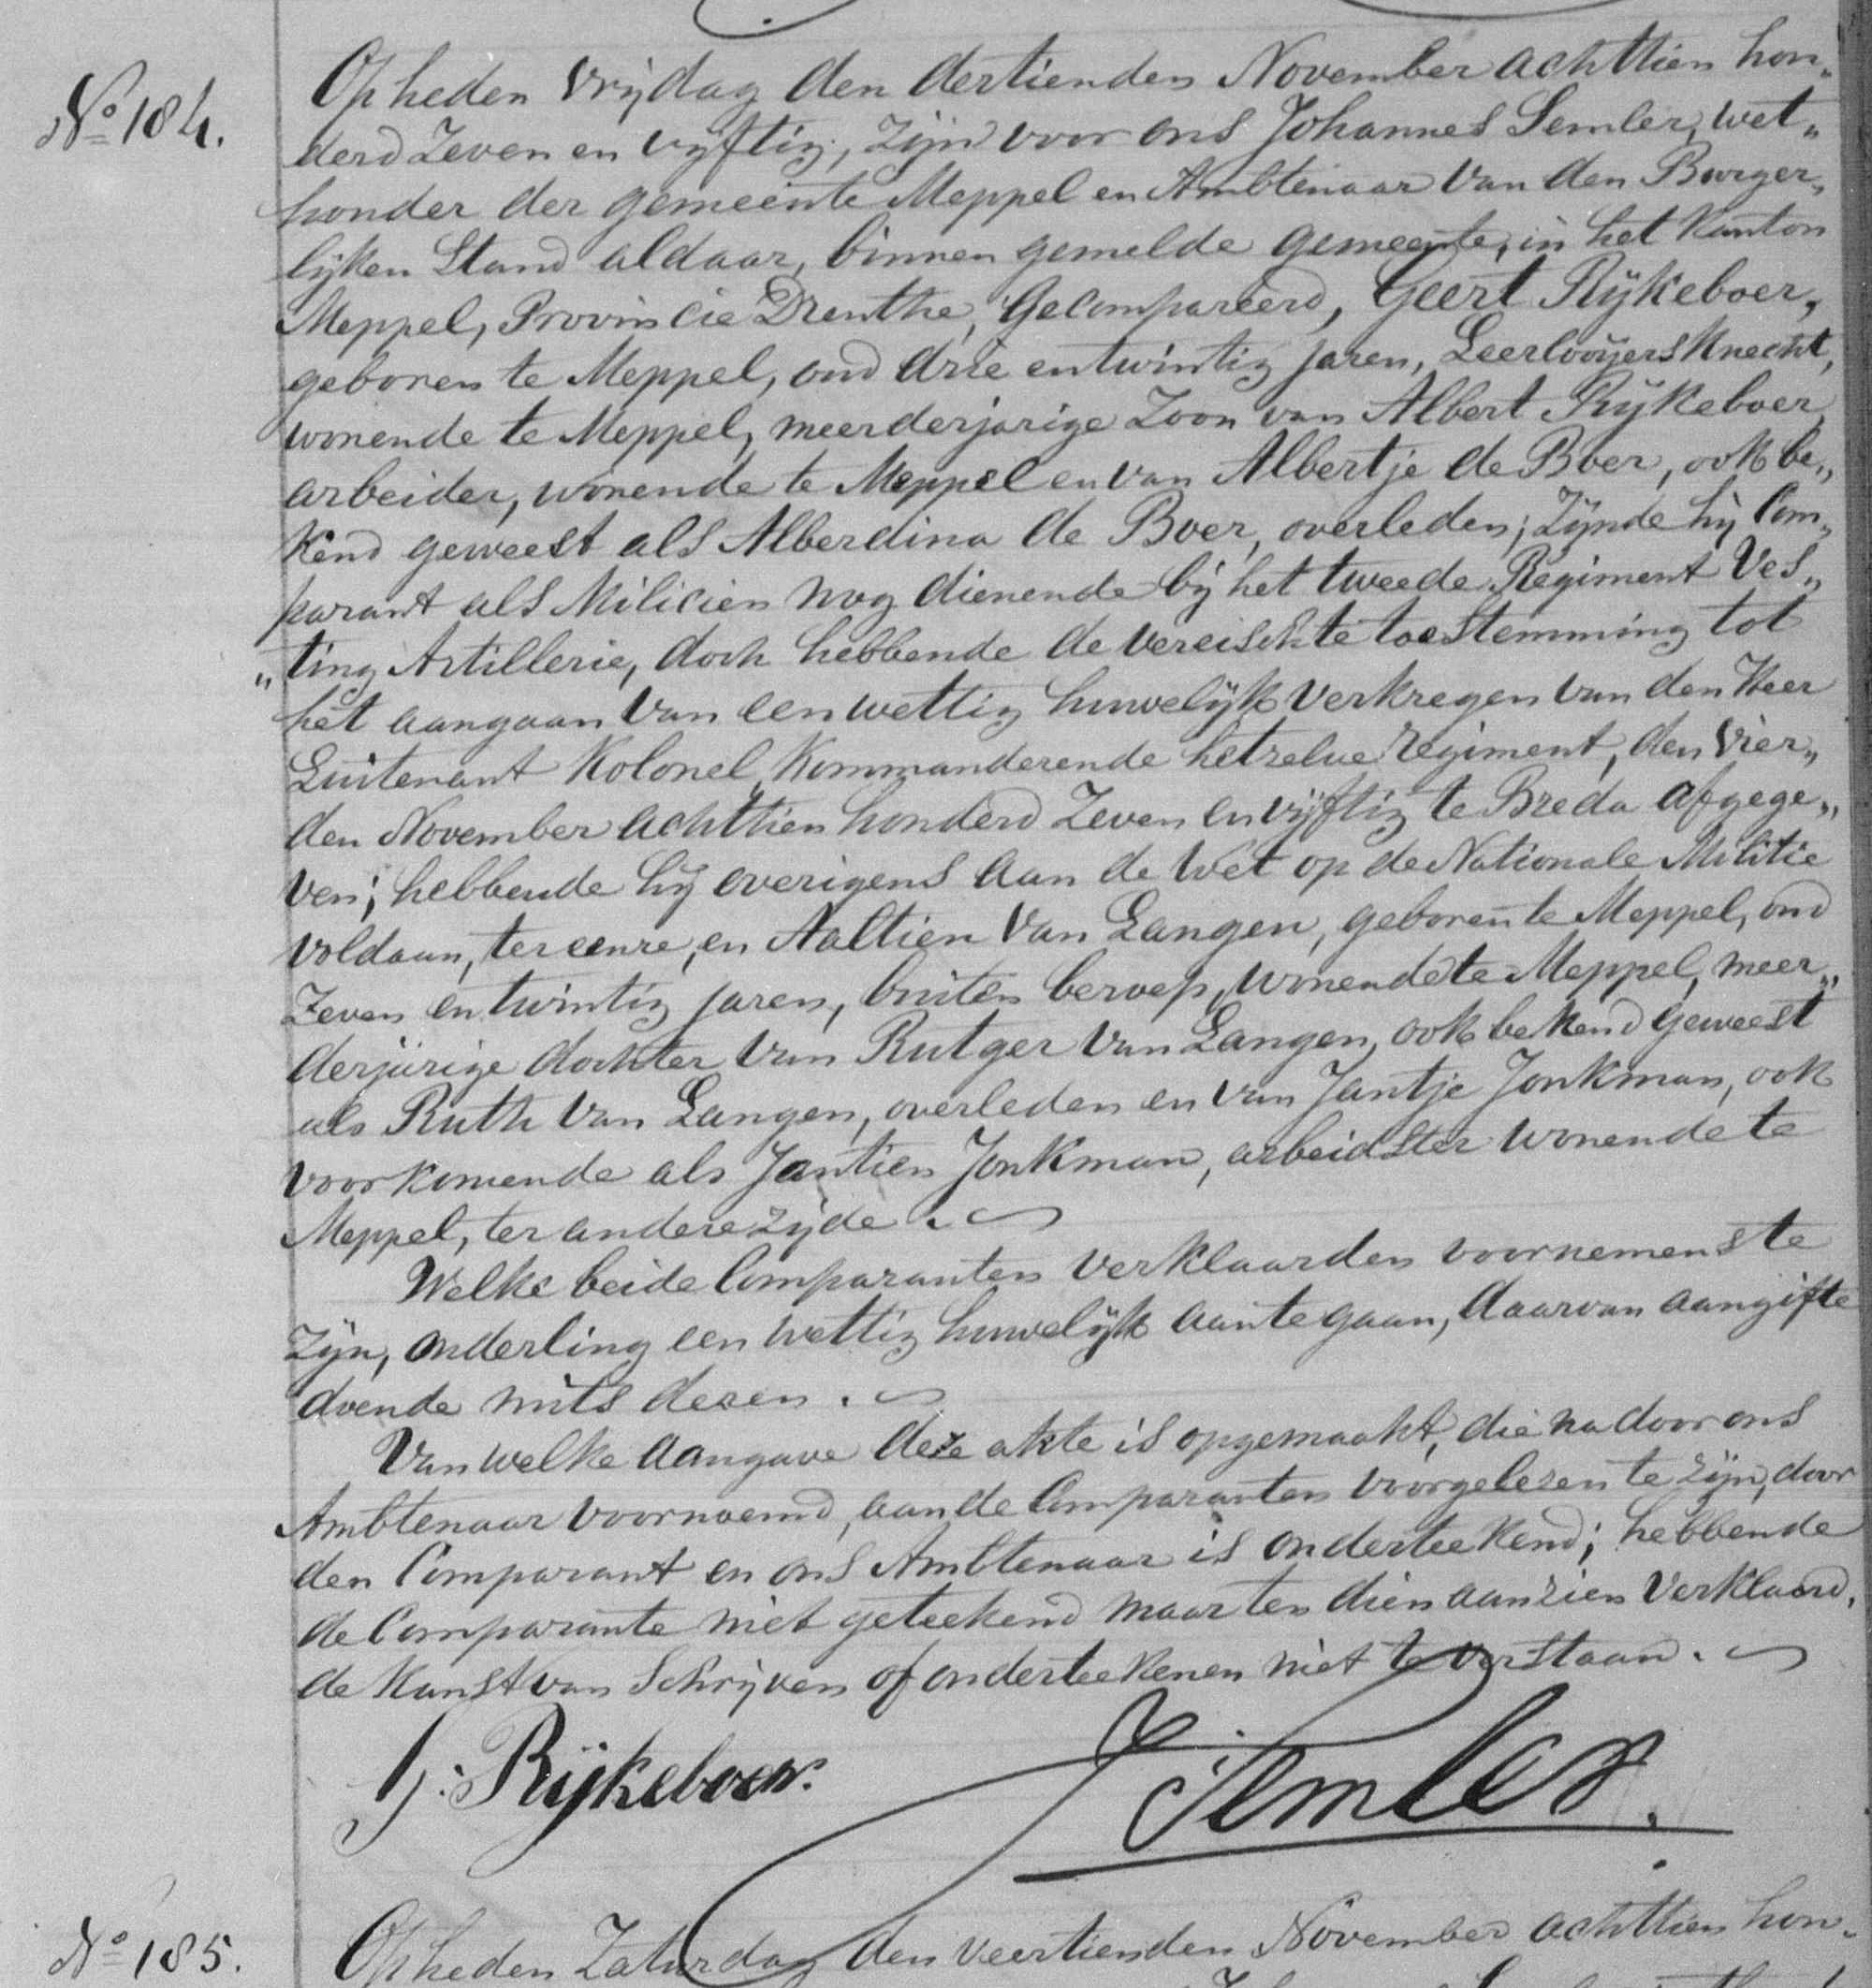 No 184.
Op heden Vrijdag den dertienden November achttien hon„
derd Zeven en vyftig, Zijn voor ons Johannes Semler, wet„
houder der gemeente Meppel en Ambtenaar van den Burger„
lijken Stand aldaar, binnen gemelde gemeente, in het Kanton
Meppel, Provincie Drenthe, Gecompareerd, Geert Rijkeboer,
geboren te Meppel, oud drie en twintig jaren, Leerlooijersknecht,
wonende te Meppel, meerderjarige Zoon van Albert Rijkeboer
arbeider, wonende te Meppel en van Albertje de Boer, ook be„
kend geweest als Alberdina de Boer, overleden; Zijnde hij Com„
parant als Milicien nog dienende bij het tweede Regiment Ves„
„ting Artillerie, doch hebbende de vereischte toestemming tot
het aangaan van een wettig huwelijk verkregen van den Heer
Luitenant Kolonel, Kommanderende hetzelve regiment, den Vier„
den November achttien honderd Zeven en vijftig te Breda afgege„
ven; hebbende hij overigens aan de Wet op de Nationale Militie
voldaan, ter eenre, en Aaltien van Langen, geboren te Meppel, oud
Zeven en twintig jaren, buiten beroep, wonende te Meppel, meer„
derjarige dochter van Rutger van Langen, ook bekend geweest
als Ruth van Langen, overleden en van Jantje Jonkman, ook
voorkomende als Jantien Jonkman, arbeidster wonende te
Meppel, ter andere zijde.
Welke beide Comparanten verklaarden voornemens te
Zijn, onderling een wettig huwelijk aan te gaan, daarvan aangifte
doende mits dezen.
Van welke aangave deze akte is opgemaakt, die na door ons
Ambtenaar voornoemd, aan de Comparanten voorgelezen te zijn, door
den Comparant en ons Ambtenaar is onderteekend; hebbende
de Comparante niet geteekend maar ten dien aanzien verklaard,
de Kunst van Schrijven of onderteekenen niet te verstaan.
G: Rijkeboer. JSemler.
No 185.
Op heden Zaturdag den veertienden November achttien hon„